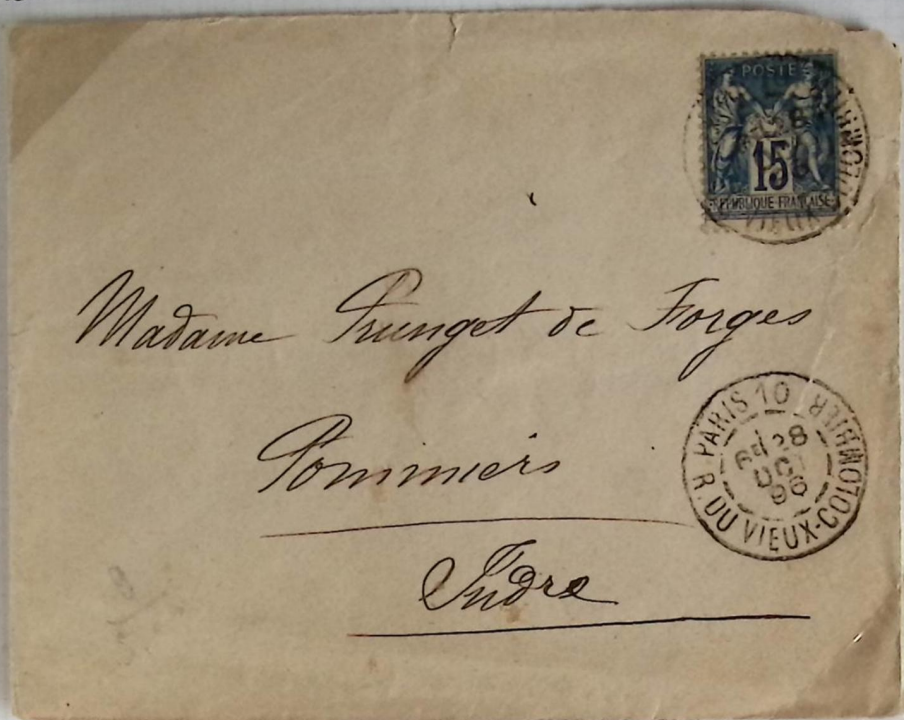 POSTE
15
REPUBLIQUE FRANÇAISE
Madame Prunget de Forges
Pommiers
Indre
PARIS 10
R. DU VIEUX-COLOMBIER
6E 28
OCT
96